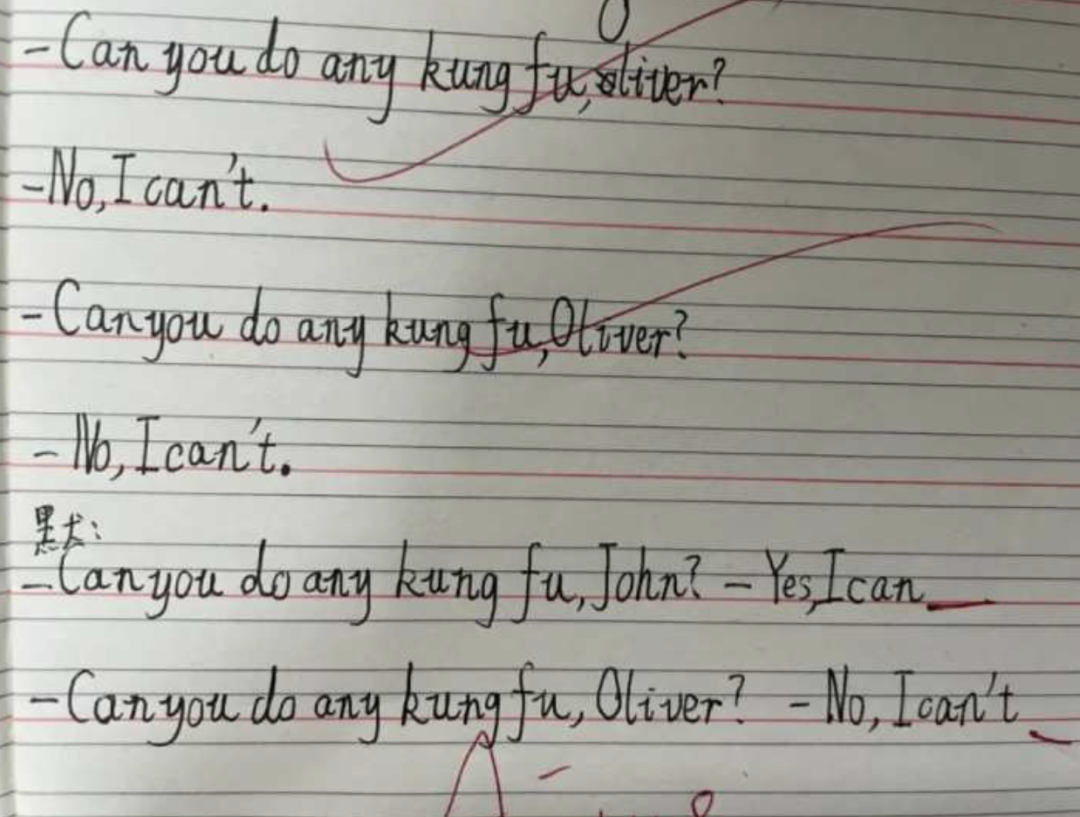 -Can you do any kung fu, oliver?
-No, I can't.
-Can you do any kung fu, Oliver?
- No, I can't.
默:
-Can you do any kung fu, John? - Yes, I can
-Can you do any kung fu, Oliver? - No, I can't